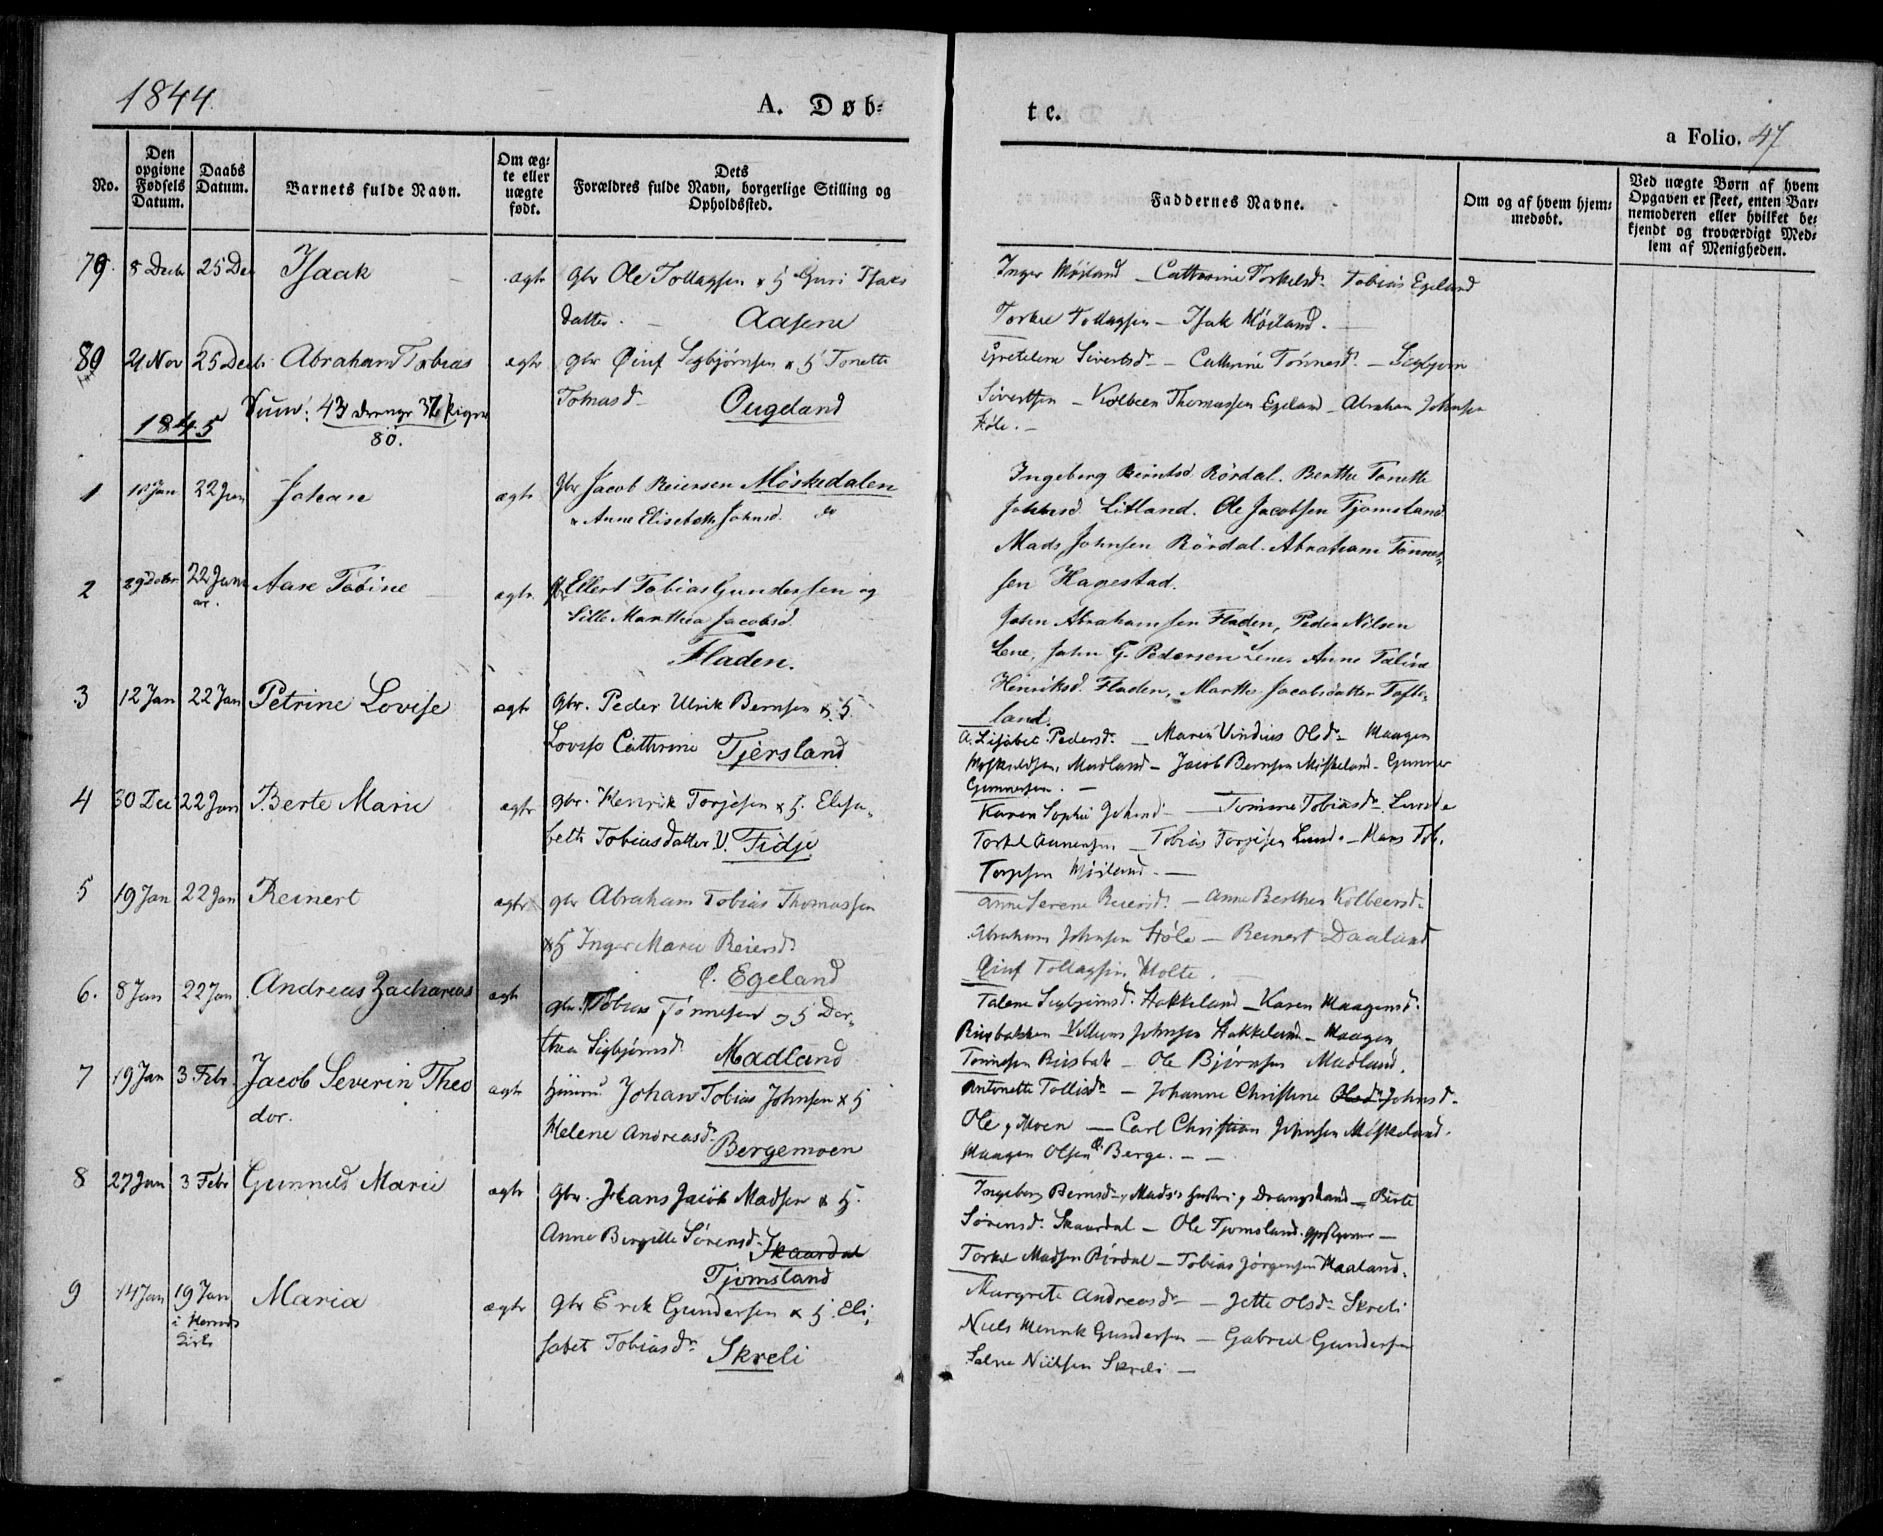 1844.
A. Døb=
te.
a Folio. 47
No.
Den opgivne Fødsels Datum.
Daabs Datum.
Barnets fulde Navn.
Om æg= te eller uægte født.
Dets Forældres fulde Navn, borgerlige Stilling og Opholdssted.
Faddernes Navne.
Om og af hvem hjem= medøbt.
Ved uægte Børn af hvem Opgaven er skeet, enten Bar= nemoderen eller hvilket be= kjendt og troværdigt Med= lem af Menigheden.
79. 8 Decb 25 De Isaak ægte gbr Ole Tollagsen & H Guri Isaks
datter. Aasene
Inger Møjland – Cathrine Torkelsd. Tobias Egeland
Torkel Tollagsen – Isak Møiland.
80 21 Nov 25 Decb. Abraham Tobias ægte gbr Øiuf Sigbjørnsen & H Tonette
Tomasd. Ougeland
Gretelene Sivertsd. – Cathrine Tønnesd. – Sigbjørn
Sivertsen – Kolbeen Thomassen Egeland – Abraham Johnsen
Høle. –
Sum: 43 Drenge 37 Piger
80.
1845
1 11 Jan 22 Jan Johan ægte gbr Jacob Reiersen Møskedalen
& Anne Elisebeth Johnsd. do
Ingeborg Berntsd. Rørdal. Berthe Tonette
Johnsd. Litland. Ole Jacobsen Tjomsland
Mads Johnsen Rørdal. Abraham Tønnes=
sen Hagestad.
2 29 Octbr 22 Jan Aase Tobine ægte gbr Ellert Tobias Gundersen og
Sille Marthea Jacobsd.
Fladen.
John Abrahamsen Fladen, Peder Nilsen
Lene, John G. Pedersen Lene, Anne Taline
Henriksd. Fladen, Marthe Jacobsdatter Tofte=
land.
3 12 Jan 22 Jan Petrine Lovise ægte gbr. Peder Ulrik Bernsen & H.
Lovise Cathrine Tjersland
A. Lisabet Pedersd. – Maren Vindius Olsd. – Maagen
Madland – Jacob Bernsen Miskeland – Gunner
Gunnersen. –
4 30 Dec 22 Jan Berte Marie ægte gbr. Henrik Torjesen & H. Elisa=
beth Tobiasdatter V. Fidje
Karen Sophie – Tomine Tobiasd. Lunde
Torkel Aanensen – Tobias Torjesen Lunde – Hans Tob.
Torjesen Møiland. –
5 19 Jan 22 Jan Reinert ægte gbr Abraham Tobias Thomassen
& H Inger Marie Reiersd.
Ø. Egeland
Anne Serene Reiersd. – Anne Berthea Kolbeensd.
Abraham Johnsen Høle – Reinert Daaland
Øiuf Tollagsen Holte.
6. 8 Jan 22 Jan Andreas Zacharias ægte gbr. Tobias Tønnesen & H Dor=
thea Sigbjørnsd. Madland
Talene Sigbjørnsd. Hakkeland – Karen Maagensd.
Risbakken Villum Johnsen Hakkeland – Maagen
Tønnesen Risbak – Ole Bjørnsen Madland.
7 19 Jan 3 Febr. Jacob Severin Theo
dor. ægte Johan Tobias Johnsen & H
Helene Andreasd. Bergemoen
Antonette Tollisd. – Johanne Christine Olsd. Johnsd.
Ole Moen – Carl Christian Johnsen Miskeland.
Maagen Olsen Ø. Berge. – –
8 27 Jan 3 Febr Gunneld Marie ægte gbr. Hans Jacob Madsen & H.
Anne Birgitte Sørensd. Skaardal
Tjomsland
Ingeborg Bernsd., Mads's Drangsland – Birte
Sørensd. Skaardal – Ole Tjomsland –
Torkel Madsen Rørdal – Tobias Jørgensen Haaland.
9 14 Jan 19 Jan
i Herreds
Kirke Maria ægte gbr Erik Gundersen & H. Eli
sabet Tobiasd. Skreli
Margrete Andreasd. – Jette Olsd. Skreli
Niels Henrik Gundersen – Gabriel Gundersen
Salve Nielsen Skreli –